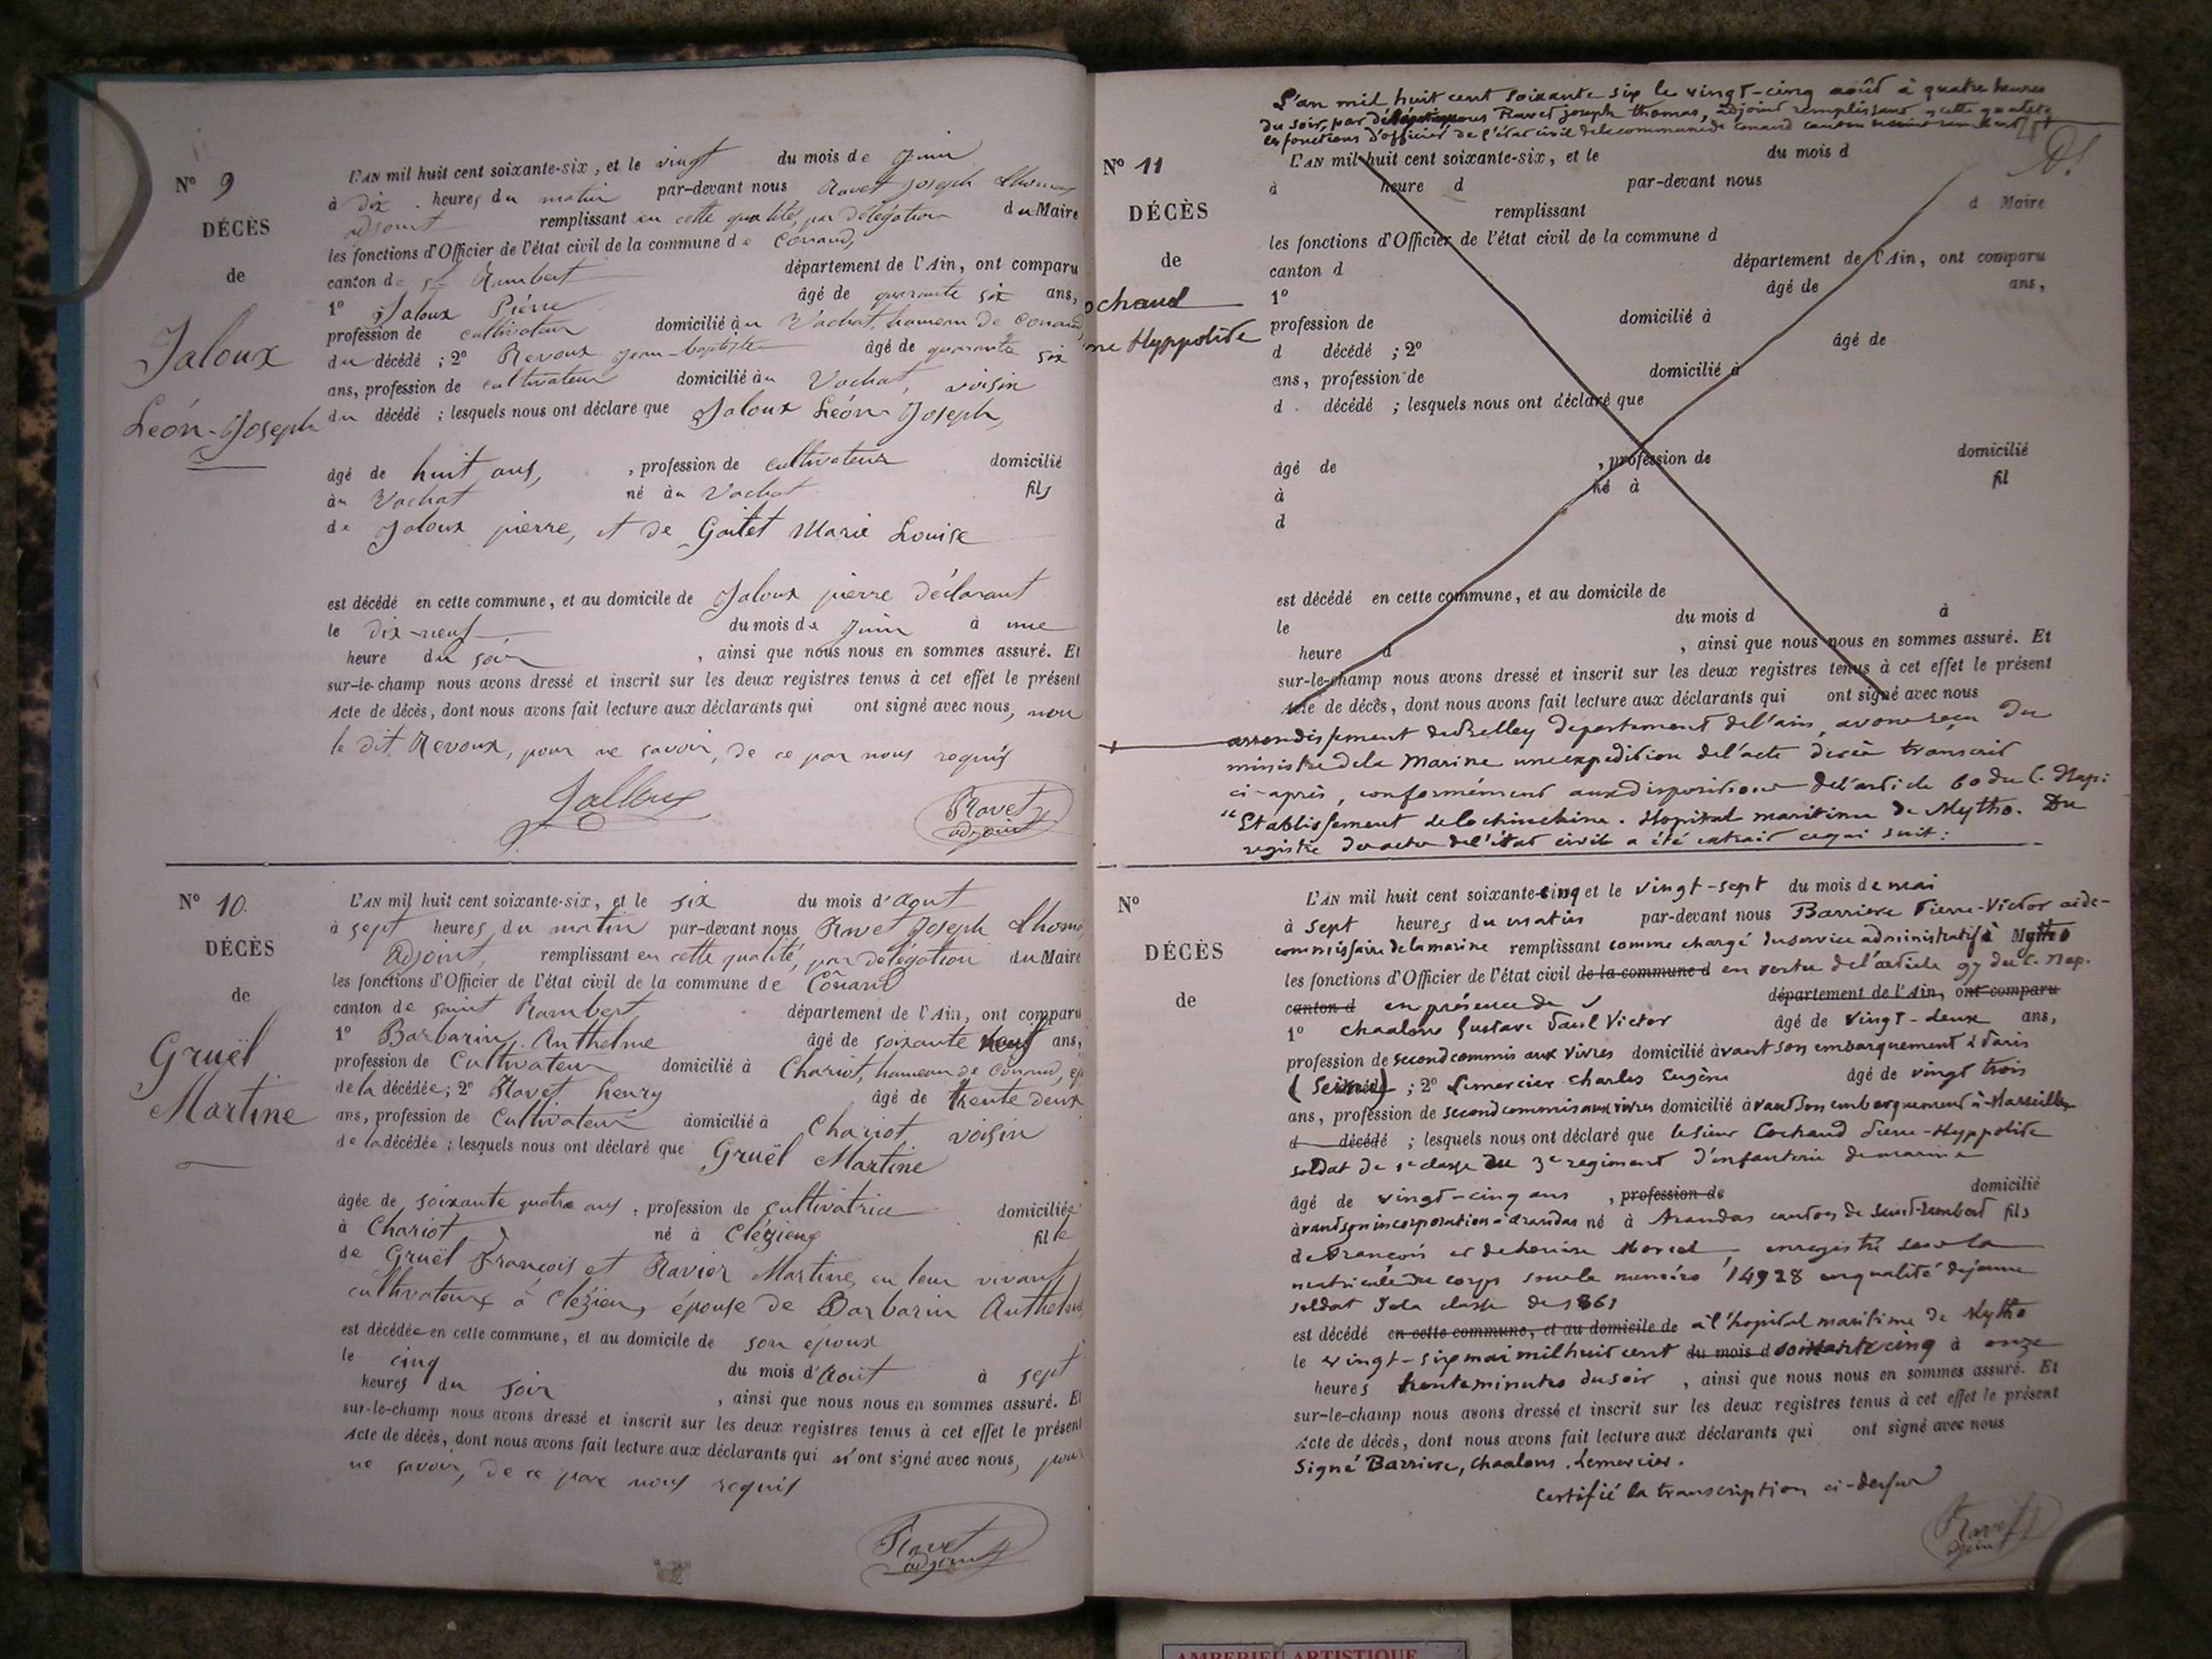 N° 9
DÉCÈS
de
Jaloux
Léon-Joseph
L'AN mil huit cent soixante-six, et le vingt du mois de Juin
à dix heures du matin par-devant nous Ravet Joseph Thomas
adjoint remplissant en cette qualité, par délégation du Maire
les fonctions d'Officier de l'état civil de la commune de Conand,
canton de St Rambert département de l'Ain, ont comparu
1° Jaloux Pierre âgé de quarante six ans,
profession de cultivateur domicilié au Vachat, hameau de Conand,
du décédé ; 2° Revoux Jean-baptiste âgé de quarante six
ans, profession de cultivateur domicilié au Vachat, voisin
du décédé ; lesquels nous ont déclaré que Jaloux Léon Joseph,
âgé de huit ans, , profession de cultivateur domicilié
au Vachat né au Vachat fils
de Jaloux pierre, et de Goitet Marie Louise
est décédé en cette commune, et au domicile de Jaloux pierre déclarant
le dix-neuf du mois de Juin à une
heure du soir , ainsi que nous nous en sommes assuré. Et
sur-le-champ nous avons dressé et inscrit sur les deux registres tenus à cet effet le présent
Acte de décès, dont nous avons fait lecture aux déclarants qui ont signé avec nous, non
le dit Revoux, pour ne savoir, de ce par nous requis
Jalloux
Ravet
adjoint
N° 10.
DÉCÈS
de
Gruël
Martine
L'AN mil huit cent soixante-six, et le six du mois d'Aout
à sept heures du matin par-devant nous Ravet Joseph Thomas
Adjoint, remplissant en cette qualité, par délégation du Maire
les fonctions d'Officier de l'état civil de la commune de Conand
canton de saint Rambert département de l'Ain, ont comparu
1° Barbarin Anthelme âgé de soixante neuf ans,
profession de Cultivateur domicilié à Chariot, hameau de Conand, ép
de la décédée ; 2° Ravet henry âgé de trente deux
ans, profession de Cultivateur domicilié à Chariot voisin
de la décédée ; lesquels nous ont déclaré que Gruël Martine
âgée de soixante quatre ans, profession de cultivatrice domiciliée
à Chariot né à Clézieu fille
de Gruël François et Ravier Martine, en leur vivant
cultivateurs à Clézieu, épouse de Barbarin Anthelme
est décédée en cette commune, et au domicile de son époux
le cinq du mois d'Aout à sept
heures du soir , ainsi que nous nous en sommes assuré. Et
sur-le-champ nous avons dressé et inscrit sur les deux registres tenus à cet effet le présent
Acte de décès, dont nous avons fait lecture aux déclarants qui n'ont signé avec nous, pour
ne savoir, de ce par nous requis
Ravet
adjoint
L'an mil huit cent soixante six le vingt-cinq août à quatre heures
du soir, par devant nous Ravet joseph thomas, adjoint remplissant en cette qualité
les fonctions d'officier de l'état civil de la commune de Conand canton
N° 11
DÉCÈS
de
ochand
rre Hyppolite
L'AN mil huit cent soixante-six, et le du mois d
à heure d par-devant nous
remplissant d Maire
les fonctions d'Officier de l'état civil de la commune d
canton d département de l'Ain, ont comparu
1° âgé de ans,
profession de domicilié à
d décédé ; 2° âgé de
ans, profession de domicilié à
d décédé ; lesquels nous ont déclaré que
âgé de , profession de domicilié
à né à fil
d
est décédé en cette commune, et au domicile de
le du mois d à
heure d , ainsi que nous nous en sommes assuré. Et
sur-le-champ nous avons dressé et inscrit sur les deux registres tenus à cet effet le présent
Acte de décès, dont nous avons fait lecture aux déclarants qui ont signé avec nous
arrondissement de Belley departement de l'ain, avons reçu du
ministre de la Marine une expedition de l'acte décès transcrit
ci-après, conformément aux dispositions de l'article 60 du C. Nap:
"Etablissement de Cochinchine. Hopital maritime de Mytho. Du
registre des actes de l'état civil a été extrait ce qui suit :
N°
DÉCÈS
de
L'AN mil huit cent soixante-cinq et le vingt-sept du mois de mai
à sept heures du matin par-devant nous Barriere Pierre-Victor aide-
commissaire de la marine remplissant comme chargé du service administratif à Mytho
les fonctions d'Officier de l'état civil de la commune d en vertu de l'article 97 du C. Nap.
canton d en présence de département de l'Ain, ont comparu
1° Chaalons Gustave Paul Victor âgé de vingt-deux ans,
profession de second commis aux vivres domicilié avant son embarquement à Paris
(Seine) ; 2° Lemercier Charles Eugène âgé de vingt trois
ans, profession de second commis aux vivres domicilié avant son embarquement à Marseille
d décédé ; lesquels nous ont déclaré que le sieur Cochand Pierre-Hyppolite
soldat de 1e classe du 3e regiment d'infanterie de marine
âgé de vingt-cinq ans , profession de domicilié
avant son incorporation à Arandas né à Arandas canton de Saint-Rambert fils
de François et de Louise Morel, enregistré sous la
matricule du corps sous le numéro 14928 en qualité de jeune
soldat de la classe de 1861
est décédé en cette commune, et au domicile de à l'hopital maritime de Mytho
le vingt-six mai mil huit cent du mois d soixante cinq à onze
heures trente minutes du soir , ainsi que nous nous en sommes assuré. Et
sur-le-champ nous avons dressé et inscrit sur les deux registres tenus à cet effet le présent
Acte de décès, dont nous avons fait lecture aux déclarants qui ont signé avec nous
Signé Barriere, Chaalons, Lemercier.
Certifié la transcription ci-dessus
Ravet
adjoint
AMBERIEU ARTISTIQUE